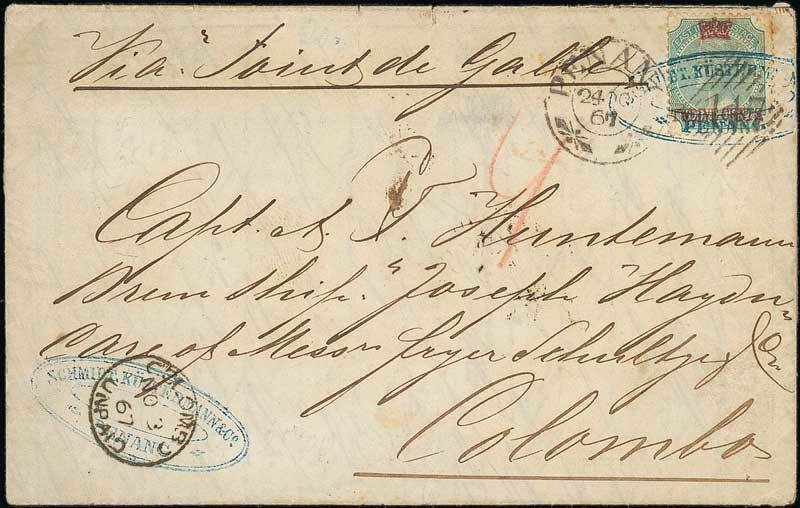 Via "Point de Galle"
PENANG
24 OC
67
SCHMIDT, KÜSTERMANN & Co.
PENANG.
TWELVE CENTS
147
Capt. A. T. Huntemann
Brem Ship. "Joseph Haydn"
Care of Messrs Fryer Schultze & Co
Colombo
SCHMIDT, KÜSTERMANN & Co.
PENANG
COLOMBO
NO 3
67
UNPAID